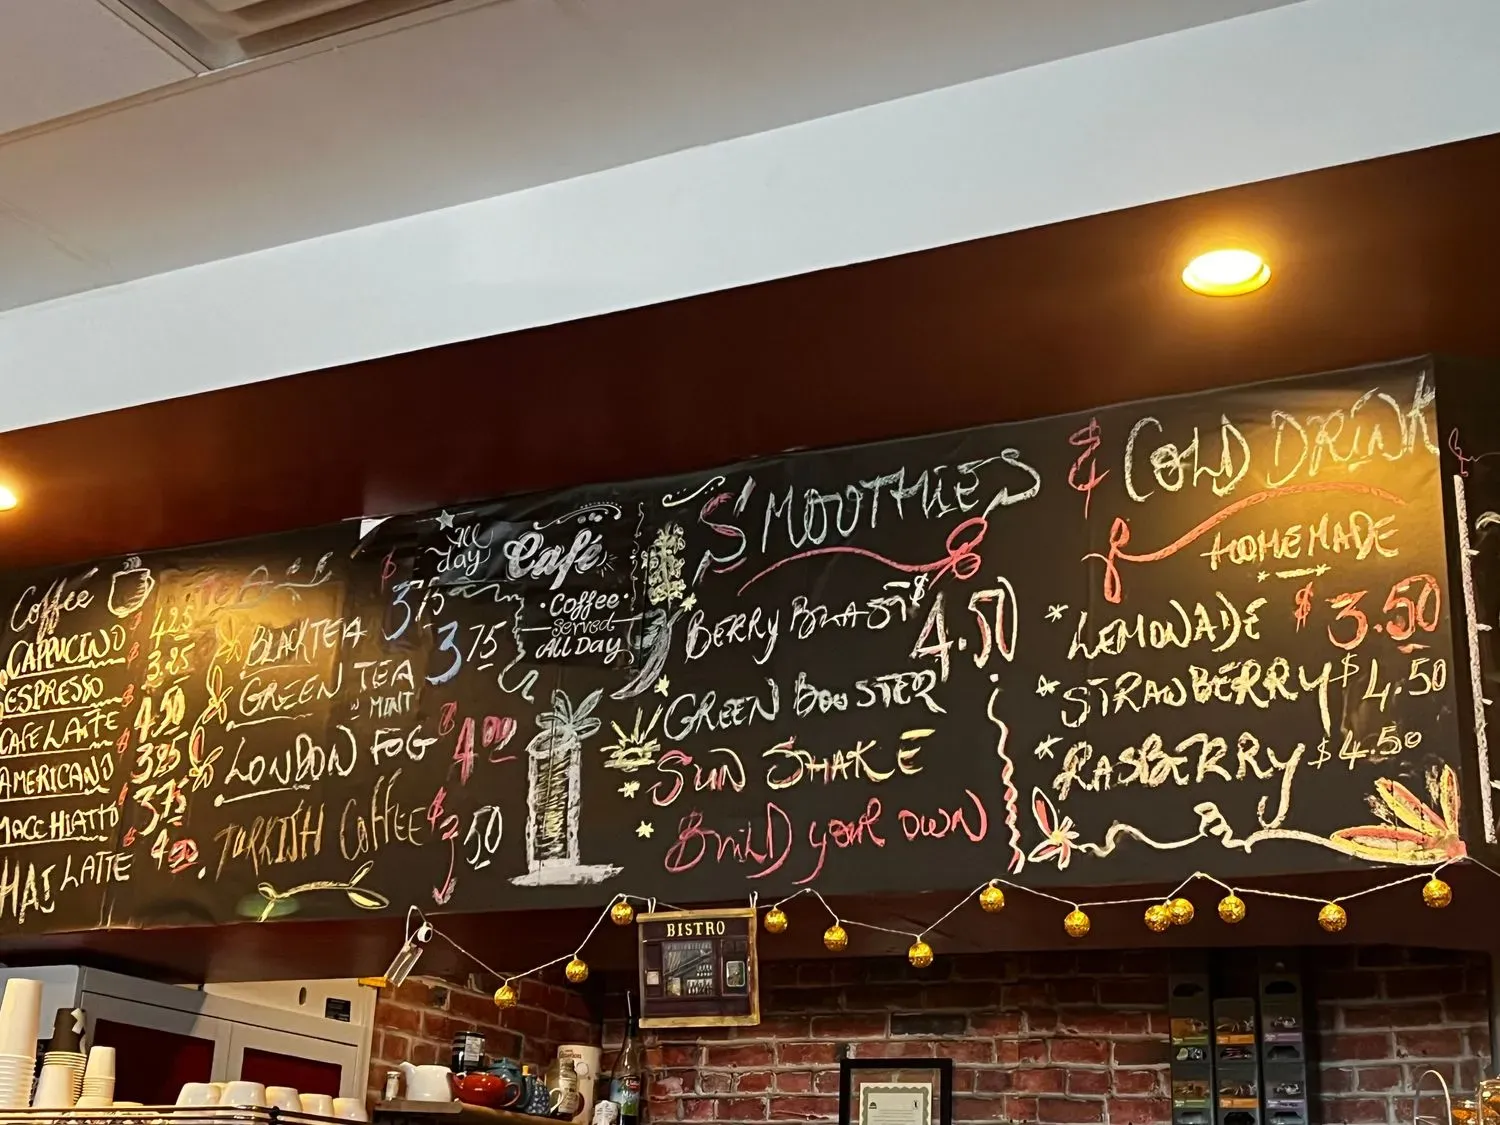 Coffee
CAPPUCINO $ 4.25
ESPRESSO $ 3.25
CAFE LATTE $ 4.50
AMERICANO $ 3.25
MACCHIATTO $ 3.75
HAI LATTE 4.00
TEA
BLACK TEA $ 3.75
GREEN TEA 3.75
" MINT
LONDON FOG $ 4.00
TURKISH COFFEE $ 3.50
All
day
Café
• Coffee •
Served
All Day
SMOOTHIES & COLD DRINK
BERRY BLAST $ 4.50
GREEN BOOSTER
SUN SHAKE
BUILD YOUR OWN
HOMEMADE
* LEMONADE $ 3.50
* STRAWBERRY $ 4.50
* RASBERRY $ 4.50
BISTRO